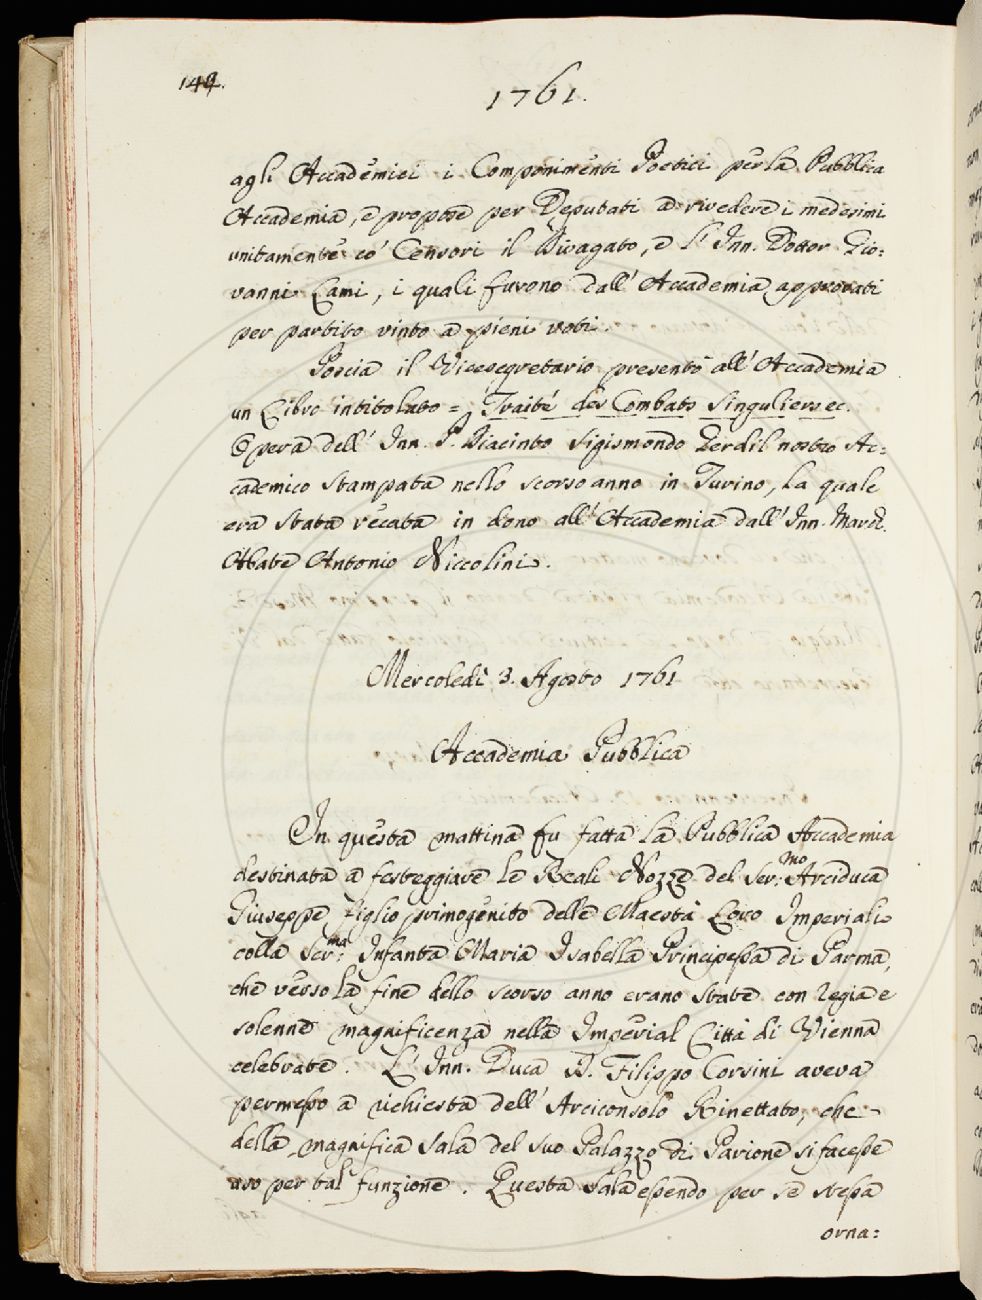 144.
1761.
agli Accademici i Componimenti Poetici per la Pubblica
Accademia, e propose per Deputati a rivedere i medesimi
unitamente co' Censori il Divagato, e l' Inn. Dottor Gio:
vanni Lami, i quali furono dall' Accademia approvati
per partito vinto a pieni voti.
Poscia il Vicesegretario presentò all' Accademia
un Libro intitolato = Traité des Combats Singuliers ec.
Opera dell' Inn. P. Giacinto Sigismondo Gerdil nostro Ac:
cademico stampata nello scorso anno in Turino, la quale
era stata recata in dono all' Accademia dall' Inn. March.
Abate Antonio Niccolini.
Mercoledì 3. Agosto 1761
Accademia Pubblica
In questa mattina fu fatta la Pubblica Accademia
destinata a festeggiare le Reali Nozze del Ser:mo Arciduca
Giuseppe figlio primogenito delle Maestà Loro Imperiali
colla Ser:ma Infanta Maria Isabella Principessa di Parma,
che verso la fine dello scorso anno erano state con regia e
solenne magnificenza nella Imperial Città di Vienna
celebrate. L' Inn. Duca D. Filippo Corsini aveva
permesso a richiesta dell' Arciconsolo Rinettato, che
della magnifica Sala del suo Palazzo di Parione si facesse
uso per tal funzione. Questa Sala essendo per se stessa
orna: